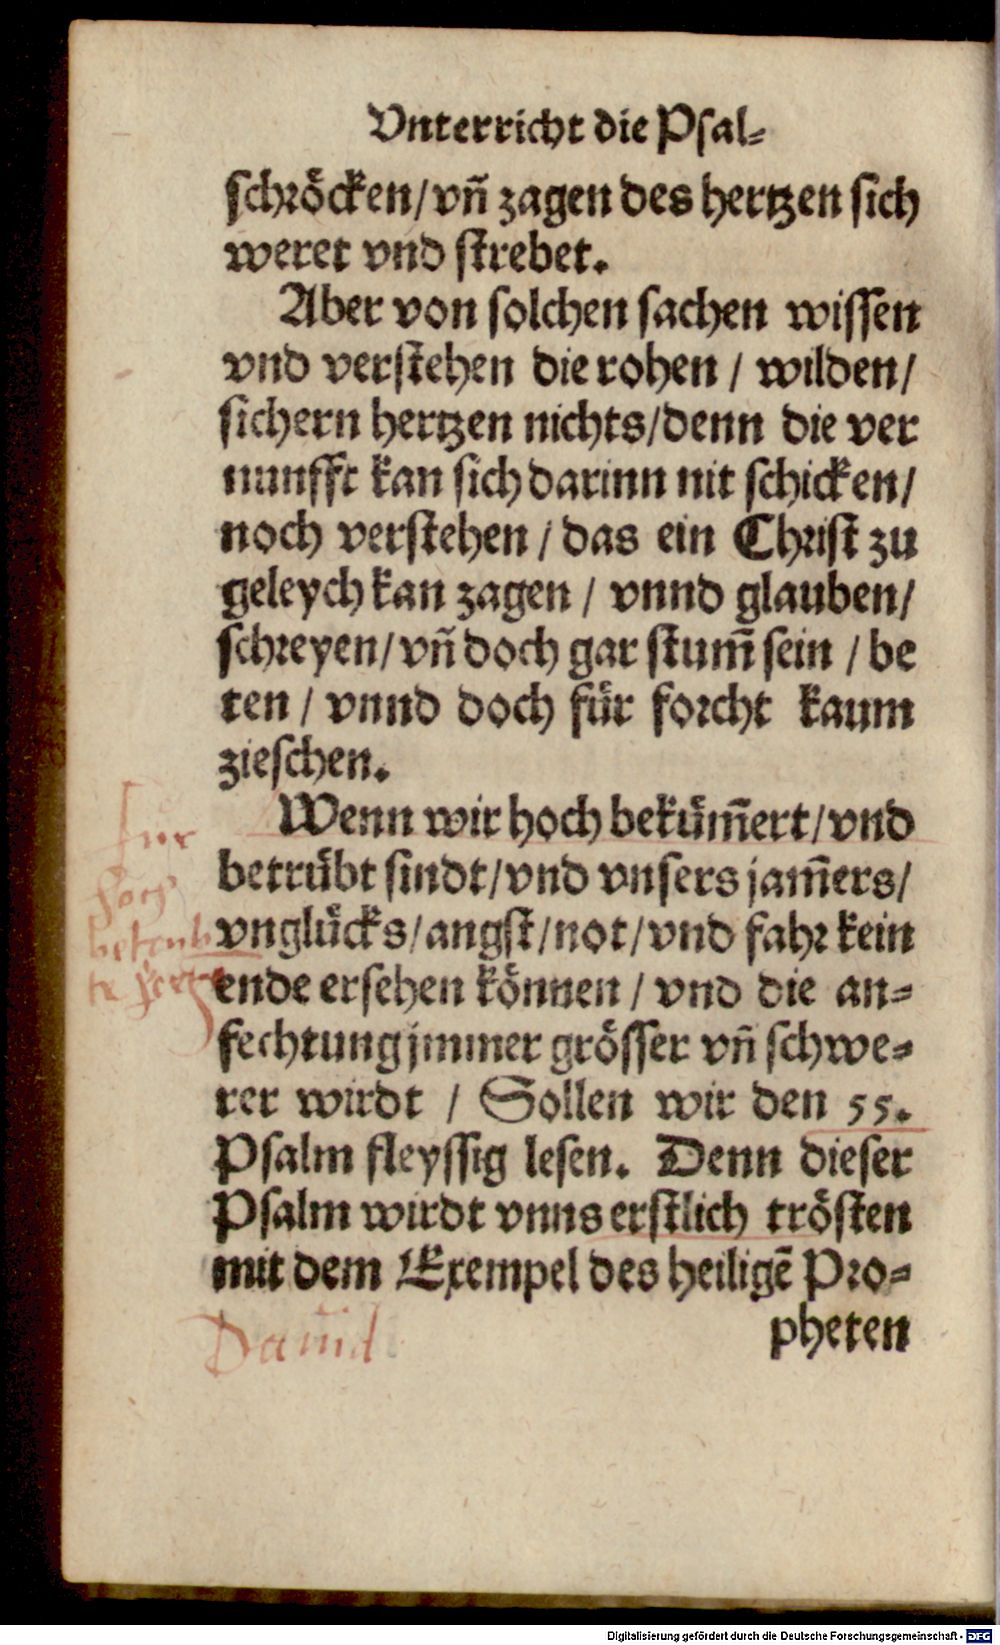 Vnterricht die Psal⸗
schröcken/vñ zagen des hertzen sich
weret vnd strebet.
Aber von solchen sachen wissen
vnd verstehen die rohen / wilden/
sichern hertzen nichts/denn die ver
nunfft kan sich darinn nit schicken/
noch verstehen / das ein Christ zu
geleych kan zagen / vnnd glauben/
schreyen/vñ doch gar stum̃ sein / be
ten / vnnd doch für forcht kaum
zieschen.
Wenn wir hoch beküm̃ert/vnd
betrübt sindt/vnd vnsers jam̃ers/
vnglücks/angst/not/vnd fahr kein
ende ersehen können / vnd die an⸗
fechtung jmmer grösser vñ schwe⸗
rer wirdt / Sollen wir den 55.
Psalm fleyssig lesen. Denn dieser
Psalm wirdt vnns erstlich trösten
mit dem Exempel des heiligẽ Pro⸗
pheten
für
hoch
Dauid
Digitalisierung gefördert durch die Deutsche Forschungsgemeinschaft - DFG